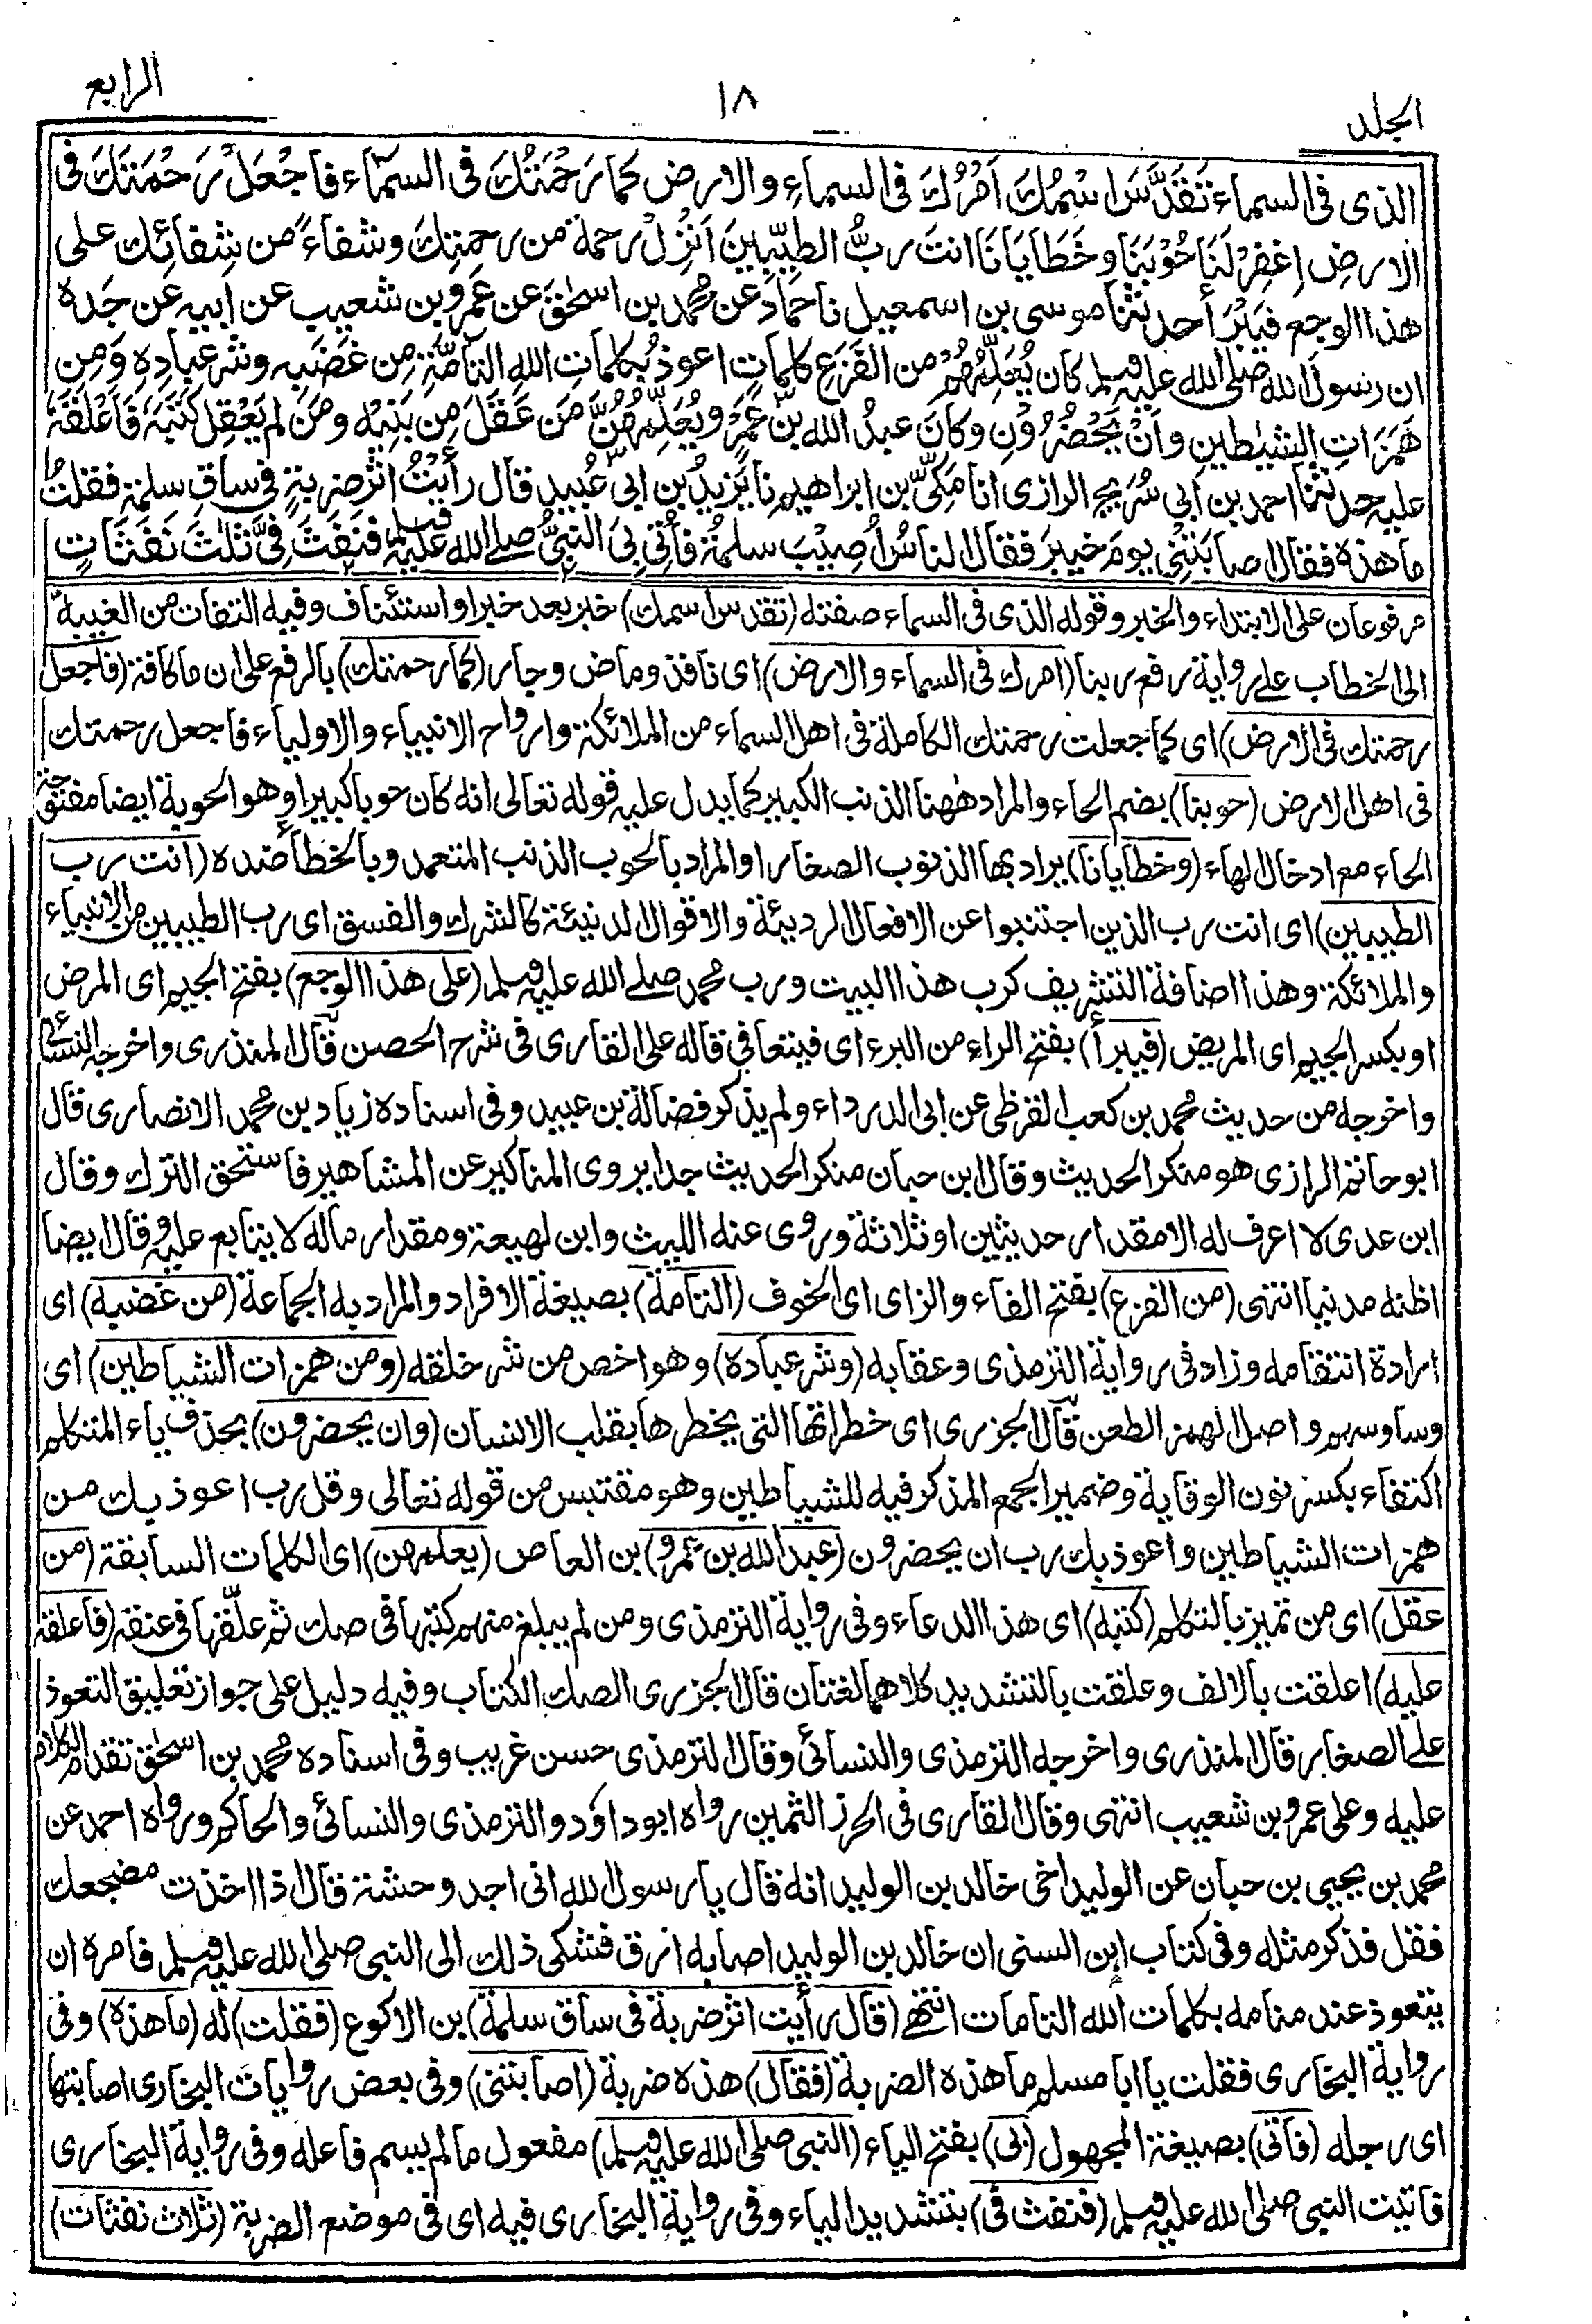 المجلد
١٨
الرابع
الذى فى السماء تَقَدَّسَ اسْمُكَ اَمْرُكَ فى السماءِ والارض كما رَحْمَتُكَ فى السَّمَاء فاجْعَلْ رَحْمَتَكَ فى
الارضِ اِغْفِرْ لَنَا حُوْبَنَا وخَطَايَانَا انتَ ربُّ الطيِّبِيْنَ اَنْزِلْ رحمةً من رحمتِكَ وشفاءً من شِفائِكَ على
هذا الوجع فيَبْرَأ حدثنا موسى بن اسمعيل نا حمادٌ عن محمد بن اسحٰقَ عن عَمرو بن شعيب عن ابيه عن جَده
ان رسولَ الله صلى الله عليه وسلم كان يُعَلِّمُهُمْ من الفَزَعِ كلماتٍ اعوذُ بكلماتِ اللهِ التامَّةِ مِن غَضَبِه وشرِ عبادِهِ وَمِن
هَمَزَاتِ الشيٰطينِ وأَنْ يَحْضُرُوْنِ وكانَ عبدُ الله بنُ عَمْرٍو يُعَلِّمُهُنَّ مَن عَقَلَ مِن بَنِيْهِ ومَن لم يَعْقِل كَتَبَهُ فَاَعْلَقَهُ
عليه حدثنا احمد بن ابى سُرَيج الرازى انا مَكِّىُّ بن ابراهيم نا يَزيدُ بن ابى عُبيد قال رأيتُ اَثَرَ ضربةٍ فى ساقِ سلمة فقلتُ
ما هذه فقال اصابَتْنِى يومَ خيبرَ فقال الناسُ اُصِيْبَ سلمةُ فأُتِىَ بِىَ النبىُّ صلى الله عليه وسلم فنَفَثَ فِىَّ ثلٰثَ نَفَثَاتٍ
مرفوعان على الابتداء والخبر وقوله الذى فى السماء صفته (تقدس اسمك) خبر بعد خبر او استئناف وفيه التفات من الغيبة
الى الخطاب على رواية رفع ربنا (امرك فى السماء والارض) اى نافذ وماض وجار (كما رحمتك) بالرفع على ان ما كافة (فاجعل
رحمتك فى الارض) اى كما جعلت رحمتك الكاملة فى اهل السماء من الملائكة وارواح الانبياء والاولياء فاجعل رحمتك
فى اهل الارض (حوبنا) بضم الحاء والمراد ههنا الذنب الكبير كما يدل عليه قوله تعالى انه كان حوبا كبيرا وهو الحوبة ايضا مفتوحة
الحاء مع ادخال الهاء (وخطايانا) يراد بها الذنوب الصغار او المراد بالحوب الذنب المتعمد وبالخطأ ضده (انت رب
الطيبين) اى انت رب الذين اجتنبوا عن الافعال الرديئة والاقوال الدنيئة كالشرك والفسق اى رب الطيبين من الانبياء
والملائكة وهذا اضافة التشريف كرب هذا البيت ورب محمد صلى الله عليه وسلم (على هذا الوجع) بفتح الجيم اى المرض
او بكسر الجيم اى المريض (فيبرأ) بفتح الراء من البرء اى فيتعافى قاله على القارى فى شرح الحصن قال المنذرى واخرجه النسائى
واخرجه من حديث محمد بن كعب القرظى عن ابى الدرداء ولم يذكر فضالة بن عبيد وفى اسناده زياد بن محمد الانصارى قال
ابو حاتم الرازى هو منكر الحديث وقال ابن حبان منكر الحديث جدا يروى المناكير عن المشاهير فاستحق الترك وقال
ابن عدى لا اعرف له الا مقدار حديثين او ثلاثة وروى عنه الليث وابن لهيعة ومقدار ماله لا يتابع عليه وقال ايضا
اظنه مدنيا انتهى (من الفزع) بفتح الفاء والزاى اى الخوف (التامة) بصيغة الافراد والمراد به الجماعة (من غضبه) اى
ارادة انتقامه وزاد فى رواية الترمذى وعقابه (وشر عباده) وهو اخص من شر خلقه (ومن همزات الشياطين) اى
وساوسهم واصل الهمز الطعن قال الجزرى اى خطراتها التى يخطرها بقلب الانسان (وان يحضرون) بحذف ياء المتكلم
اكتفاء بكسر نون الوقاية وضمير الجمع المذكر فيه للشياطين وهو مقتبس من قوله تعالى وقل رب اعوذ بك من
همزات الشياطين واعوذ بك رب ان يحضرون (عبد الله بن عمرو) بن العاص (يعلمهن) اى الكلمات السابقة (من
عقل) اى من تميز بالتكلم (كتبه) اى هذا الدعاء وفى رواية الترمذى ومن لم يبلغ منهم كتبها فى صك ثم علّقها فى عنقه (فاعلقه
عليه) اعلقت بالالف وعلقت بالتشديد كلاهما لغتان قال الجزرى الصك الكتاب وفيه دليل على جواز تعليق التعوذ
على الصغار قال المنذرى واخرجه الترمذى والنسائى وقال الترمذى حسن غريب وفى اسناده محمد بن اسحٰق تقدم الكلام
عليه وعلى عمرو بن شعيب انتهى وقال القارى فى الحرز الثمين رواه ابو داؤد والترمذى والنسائى والحاكم ورواه احمد عن
محمد بن يحيى بن حبان عن الوليد اخى خالد بن الوليد انه قال يا رسول الله انى اجد وحشة قال اذا اخذت مضجعك
فقل فذكر مثله وفى كتاب ابن السنى ان خالد بن الوليد اصابه ارق فشكى ذلك الى النبى صلى الله عليه وسلم فامره ان
يتعوذ عند منامه بكلمات الله التامات انتهى (قال رأيت اثر ضربة فى ساق سلمة) بن الاكوع (فقلت) له (ما هذه) وفى
رواية البخارى فقلت يا ابا مسلم ما هذه الضربة (فقال) هذه ضربة (اصابتنى) وفى بعض روايات البخارى اصابتها
اى رجله (فاُتى) بصيغة المجهول (بى) بفتح الياء (النبى صلى الله عليه وسلم) مفعول ما لم يسم فاعله وفى رواية البخارى
فاتيت النبى صلى الله عليه وسلم (فنفث فى) بتشديد الياء وفى رواية البخارى فيه اى فى موضع الضربة (ثلاث نفثات)